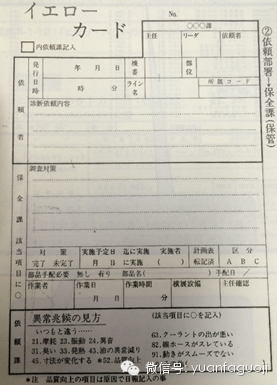 イエロー
カード
No.
□内依頼課記入
○○○課
主任 リーダ 依頼者
②依頼部署→保全課(保管)
依頼者
発行日時 年 月 日 時 分
機番
ライン名
部位
所属コード
診断依頼内容
保全課該当項目に○
調査対策
対策 実施予定日 迄に実施 実施者 計画表 区分
完了 未完了 月 日 に実施 ( ) 転記済 A B C
部品手配必要 無し 有り 部品名( ) 手配日 /
作業者 作業日 作業時間 横展設備 主任確認
依頼課
異常兆候の見方 (該当項目に○を記入)
いつもと違う……
21.摩耗 23.振動 24.異音
31.臭い 33.発熱 43.油の異常減り
45.寸法が変化する *52.品質向上
63.クーラントの出が悪い
82.線ホースがスレている
91.動きがスムーズでない
*注 品質向上の項目は原因で日報記入の事
微信号: yuanfaguoji